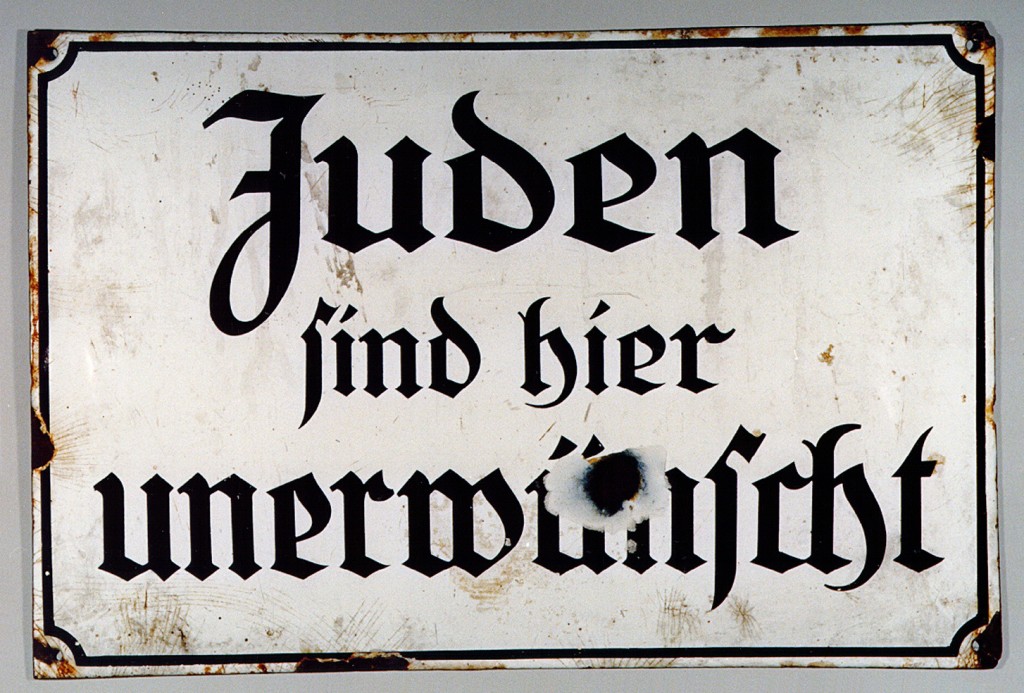 Juden
sind hier
unerwünscht